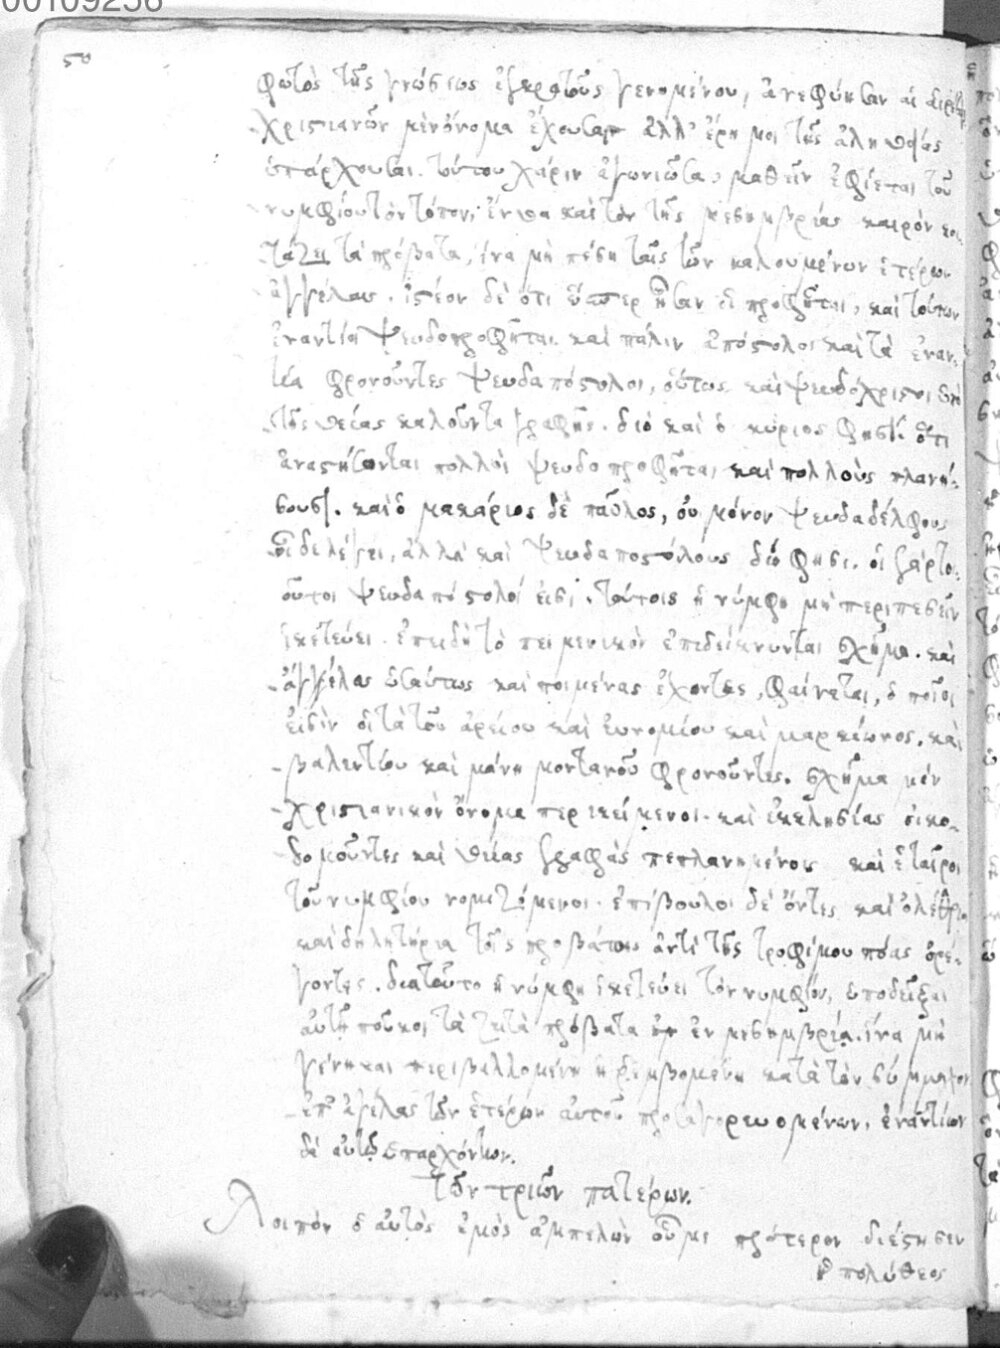 00109256
50
φωτὸς τῆς γνώσεως ἐξερχοὺς γενομένου, ἀνεφύησαν αἱ αἱρέσεις
χριστιανῶν μὲν ὄνομα ἔχουσαι ἀλλ' ἔρημοι τῆς ἀληθείας
ὑπάρχουσαι. τούτου χάριν ἀγωνιῶσα, μαθεῖν ἐφίεται τοῦ
νυμφίου τὸν τόπον, ἔνθα κατὰ τὸν τῆς μεσημβρίας καιρὸν κοι-
τάζει τὰ πρόβατα, ἵνα μὴ πέση ταῖς τῶν καλουμένων ἑτέρων
ἀγγέλαις. ἰστέον δὲ ὅτι ὥσπερ ἦσαν οἱ προφῆται, καὶ τούτων
ἐναντίοι ψευδοπροφῆται. καὶ πάλιν ἀπόστολοι καὶ τὰ ἐναν-
τία φρονοῦντες ψευδαπόστολοι, οὕτως καὶ ψευδόχριστοι ὑπὸ
τῆς θείας καλοῦνται γραφῆς. διὸ καὶ ὁ κύριος φησὶ. ὅτι
ἀναστήσονται πολλοὶ ψευδοπροφῆται καὶ πολλοὺς πλανή-
σουσι. καὶ ὁ μακάριος δὲ παῦλος, οὐ μόνον ψευδαδέλφους
οἶδε λέγει, ἀλλὰ καὶ ψευδαποστόλους διό φησι. οἱ γὰρ το-
οῦτοι ψευδαπόστολοί εἰσι. τούτοις ἡ νύμφη μὴ περιπεσεῖν
ἱκετεύει. ἐπειδὴ τὸ ποιμενικὸν ἐπιδείκνυνται σχῆμα. καὶ
ἀγγέλας ὡσαύτως καὶ ποιμένας ἔχοντες, φαίνεται, ὁποῖοι
εἰσὶν οἱ τὰ τοῦ ἀρείου καὶ εὐνομίου καὶ μαρκίωνος. καὶ
βαλεντίου καὶ μάνη μοντανοῦ φρονοῦντες. σχῆμα μὲν
χριστιανικὸν ὄνομα περικείμενοι. καὶ ἐκκλησίας οἰκο-
δομοῦντες καὶ θείας γραφὰς πεπλανημένοις καὶ ἑταῖροι
τοῦ νυμφίου νομιζόμενοι. ἐπίβουλοι δὲ ὄντες καὶ ὀλέθρια
καὶ δηλητήρια τοῖς προβάτοις ἀντὶ τῆς τροφίμου πόας ὀρέ-
γοντες. διατοῦτο ἡ νύμφη ἱκετεύει τὸν νυμφίον, ὑποδεῖξαι
αὐτῇ ποῦ κοιτάζει τὰ πρόβατα ἐν μεσημβρία. ἵνα μὴ
γένηται περιβαλλομένη ἢ ρεμβομένη κατὰ τὸν σύμμαχον
ἐπ' ἀγέλας τῶν ἑτέρων αὐτοῦ προσαγορευομένων, ἐναντίων
δὲ αὐτῷ ὑπαρχόντων.
τῶν τριῶν πατέρων.
Λοιπὸν ὁ αὐτὸς ἐμὸς ἀμπελὼν οὗ με πρότερον διέστησεν
ἡ πολύθεος